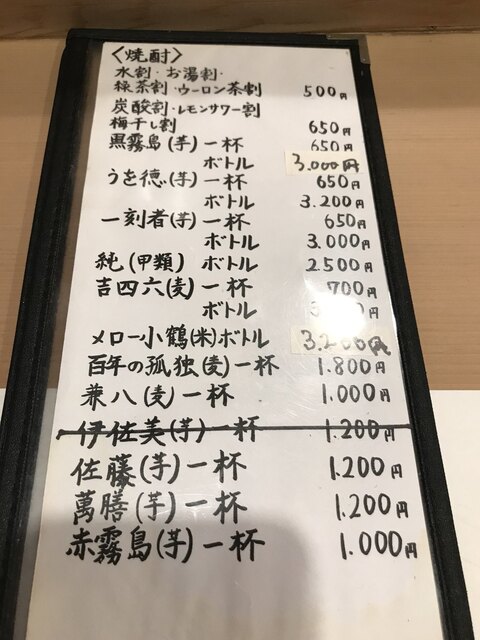 〈焼酎〉
水割・お湯割・
緑茶割・ウーロン茶割 500円
炭酸割・レモンサワー割
梅干し割 650円
黒霧島(芋)一杯 650円
ボトル 3.000円
うを徳(芋)一杯 650円
ボトル 3.200円
一刻者(芋)一杯 650円
ボトル 3.000円
純(甲類) ボトル 2.500円
吉四六(麦)一杯 700円
ボトル 円
メロー小鶴(米)ボトル 3.200円
百年の孤独(麦)一杯 1.800円
兼八(麦)一杯 1.000円
伊佐美(芋)一杯 1.200円
佐藤(芋)一杯 1.200円
萬膳(芋)一杯 1.200円
赤霧島(芋)一杯 1.000円